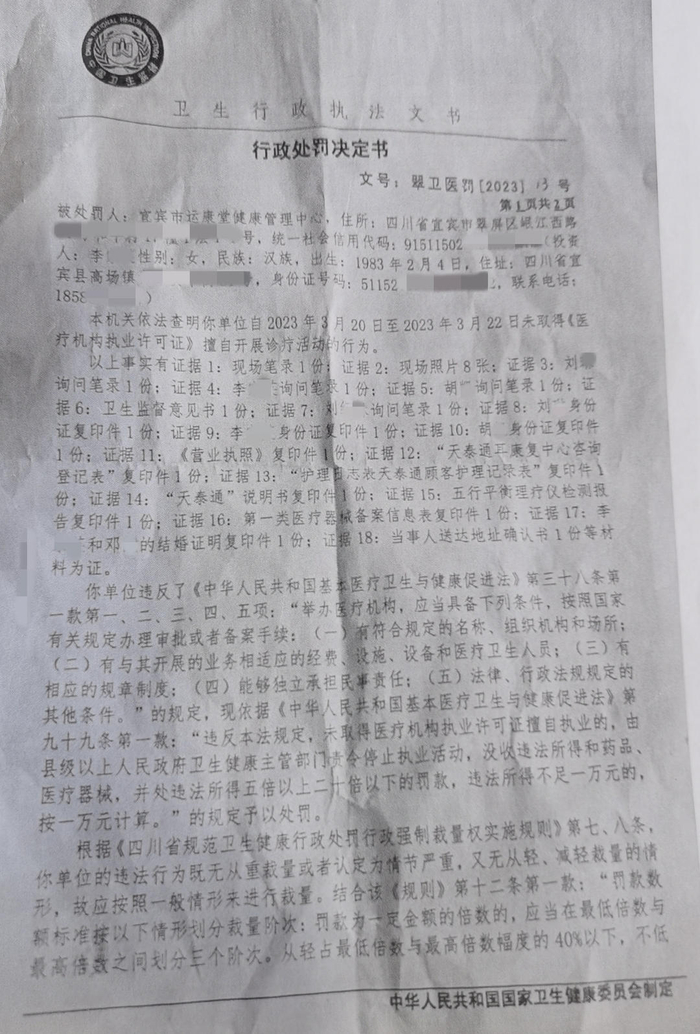 CHINA NATIONAL HEALTH INSPECTION
中国卫生监督
卫生行政执法文书
行政处罚决定书
文号：翠卫医罚[2023] 13 号
第1页共2页
被处罚人：宜宾市运康堂健康管理中心，住所：四川省宜宾市翠屏区岷江西路
号，统一社会信用代码：91511502（投资
人：李 性别：女，民族：汉族，出生：1983年2月4日，住址：四川省宜
宾县高场镇 ，身份证号码：51152 ，联系电话：
1858 ）
本机关依法查明你单位自2023年3月20日至2023年3月22日未取得《医
疗机构执业许可证》擅自开展诊疗活动的行为。
以上事实有证据1：现场笔录1份；证据2：现场照片8张；证据3：刘
询问笔录1份；证据4：李 询问笔录1份；证据5：胡 询问笔录1份；证
据6：卫生监督意见书1份；证据7：刘 询问笔录1份；证据8：刘 身份
证复印件1份；证据9：李 身份证复印件1份；证据10：胡 身份证复印件
1份；证据11：《营业执照》复印件1份；证据12：“天泰通耳康复中心咨询
登记表”复印件1份；证据13：“护理日志表天泰通顾客护理记录表”复印件1
份；证据14：“天泰通”说明书复印件1份；证据15：五行平衡理疗仪检测报
告复印件1份；证据16：第一类医疗器械备案信息表复印件1份；证据17：李
和邓 的结婚证明复印件1份；证据18：当事人送达地址确认书1份等材
料为证。
你单位违反了《中华人民共和国基本医疗卫生与健康促进法》第三十八条第
一款第一、二、三、四、五项：“举办医疗机构，应当具备下列条件，按照国家
有关规定办理审批或者备案手续：（一）有符合规定的名称、组织机构和场所；
（二）有与其开展的业务相适应的经费、设施、设备和医疗卫生人员；（三）有
相应的规章制度；（四）能够独立承担民事责任；（五）法律、行政法规规定的
其他条件。”的规定，现依据《中华人民共和国基本医疗卫生与健康促进法》第
九十九条第一款：“违反本法规定，未取得医疗机构执业许可证擅自执业的，由
县级以上人民政府卫生健康主管部门责令停止执业活动，没收违法所得和药品、
医疗器械，并处违法所得五倍以上二十倍以下的罚款，违法所得不足一万元的，
按一万元计算。”的规定予以处罚。
根据《四川省规范卫生健康行政处罚行政强制裁量权实施规则》第七、八条，
你单位的违法行为既无从重裁量或者认定为情节严重，又无从轻、减轻裁量的情
形，故应按照一般情形来进行裁量。结合该《规则》第十二条第一款：“罚款数
额标准按以下情形划分裁量阶次：罚款为一定金额的倍数的，应当在最低倍数与
最高倍数之间划分三个阶次。从轻占最低倍数与最高倍数幅度的40%以下，不低
中华人民共和国国家卫生健康委员会制定